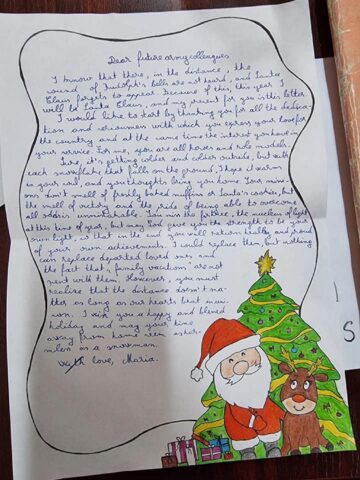 Dear future army colleagues,
I know that there, in the distance, the
sound of Rudolph's bells are not heard, and Santa
Claus forgets to appear. Because of this, this year I
will be Santa Claus, and my present for you is this letter.
I would like to start by thanking you for all the dedica-
tion and seriousness with which you express your love for
the country and at the same time the interest you have in
your service. For me, you are all heroes and role models.
Sure, it's getting colder and colder outside, but with
each snowflake that falls on the ground, I hope it warms
in your soul, and your thoughts bring you home. Your missi-
ons don't smell of freshly baked muffins or Santa's cookies, but
the smell of victory and the pride of being able to overcome
all odds is unmistakable. You miss the
at this time of year, but may God give you the strength to be your
own light, so that in the end you will return healthy and proud
of your own achievements. I could replace them, but nothing
can replace departed loved ones and
the fact that „family vacations" are not
spent with them. However, you must
realize that the distance doesn't ma-
tter as long as our hearts beat in uni-
son. I wish you a happy and blessed
holiday and may your time
away from home
as a snowman.
With love, Maria.
S